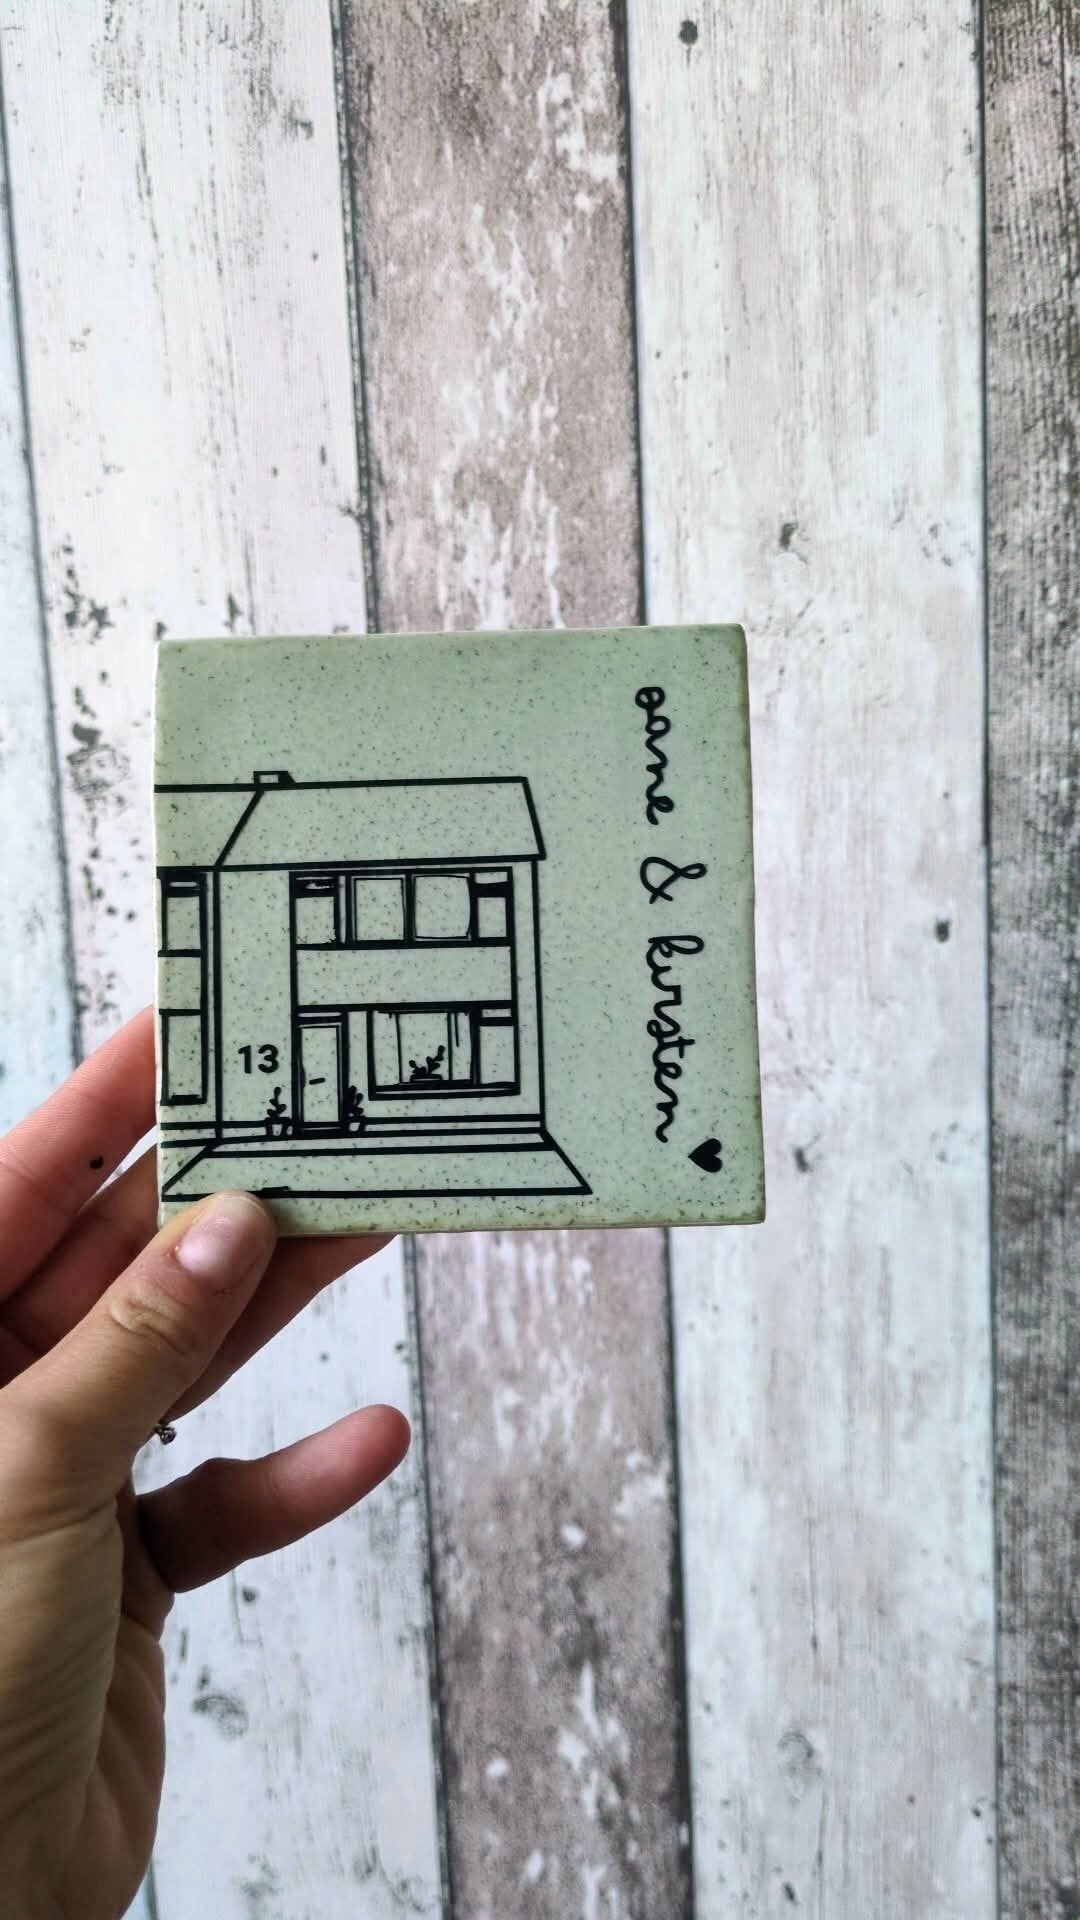 13
oane & kirsten